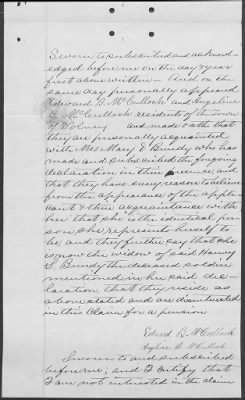 Sworn to & subscribed and acknowl-
edged before me on the day & year
first above written - And on the
same day personally appeared
Edward B. McCulloch and Angeline
B. McCulloch residents of the Town
of Volney and made oath that
they are personally acquainted
with Mrs Mary E Bundy who has
made and subscribed the foregoing
declaration in their presence and
that they have every reason to believe
from the appearance of the applic-
ant & their acquaintance with
her that she is the identical per-
son she represents herself to
be and they further say that she
is now the widow of said Harvey
Bundy the deceased soldier
mentioned in her said dec-
laration, that they reside as
above stated and are disinterested
in this Claim for a pension
Edward B. McCulloch
Angeline B. McCulloch
Sworn to and subscribed
before me, and I certify that
I am not interested in the claim